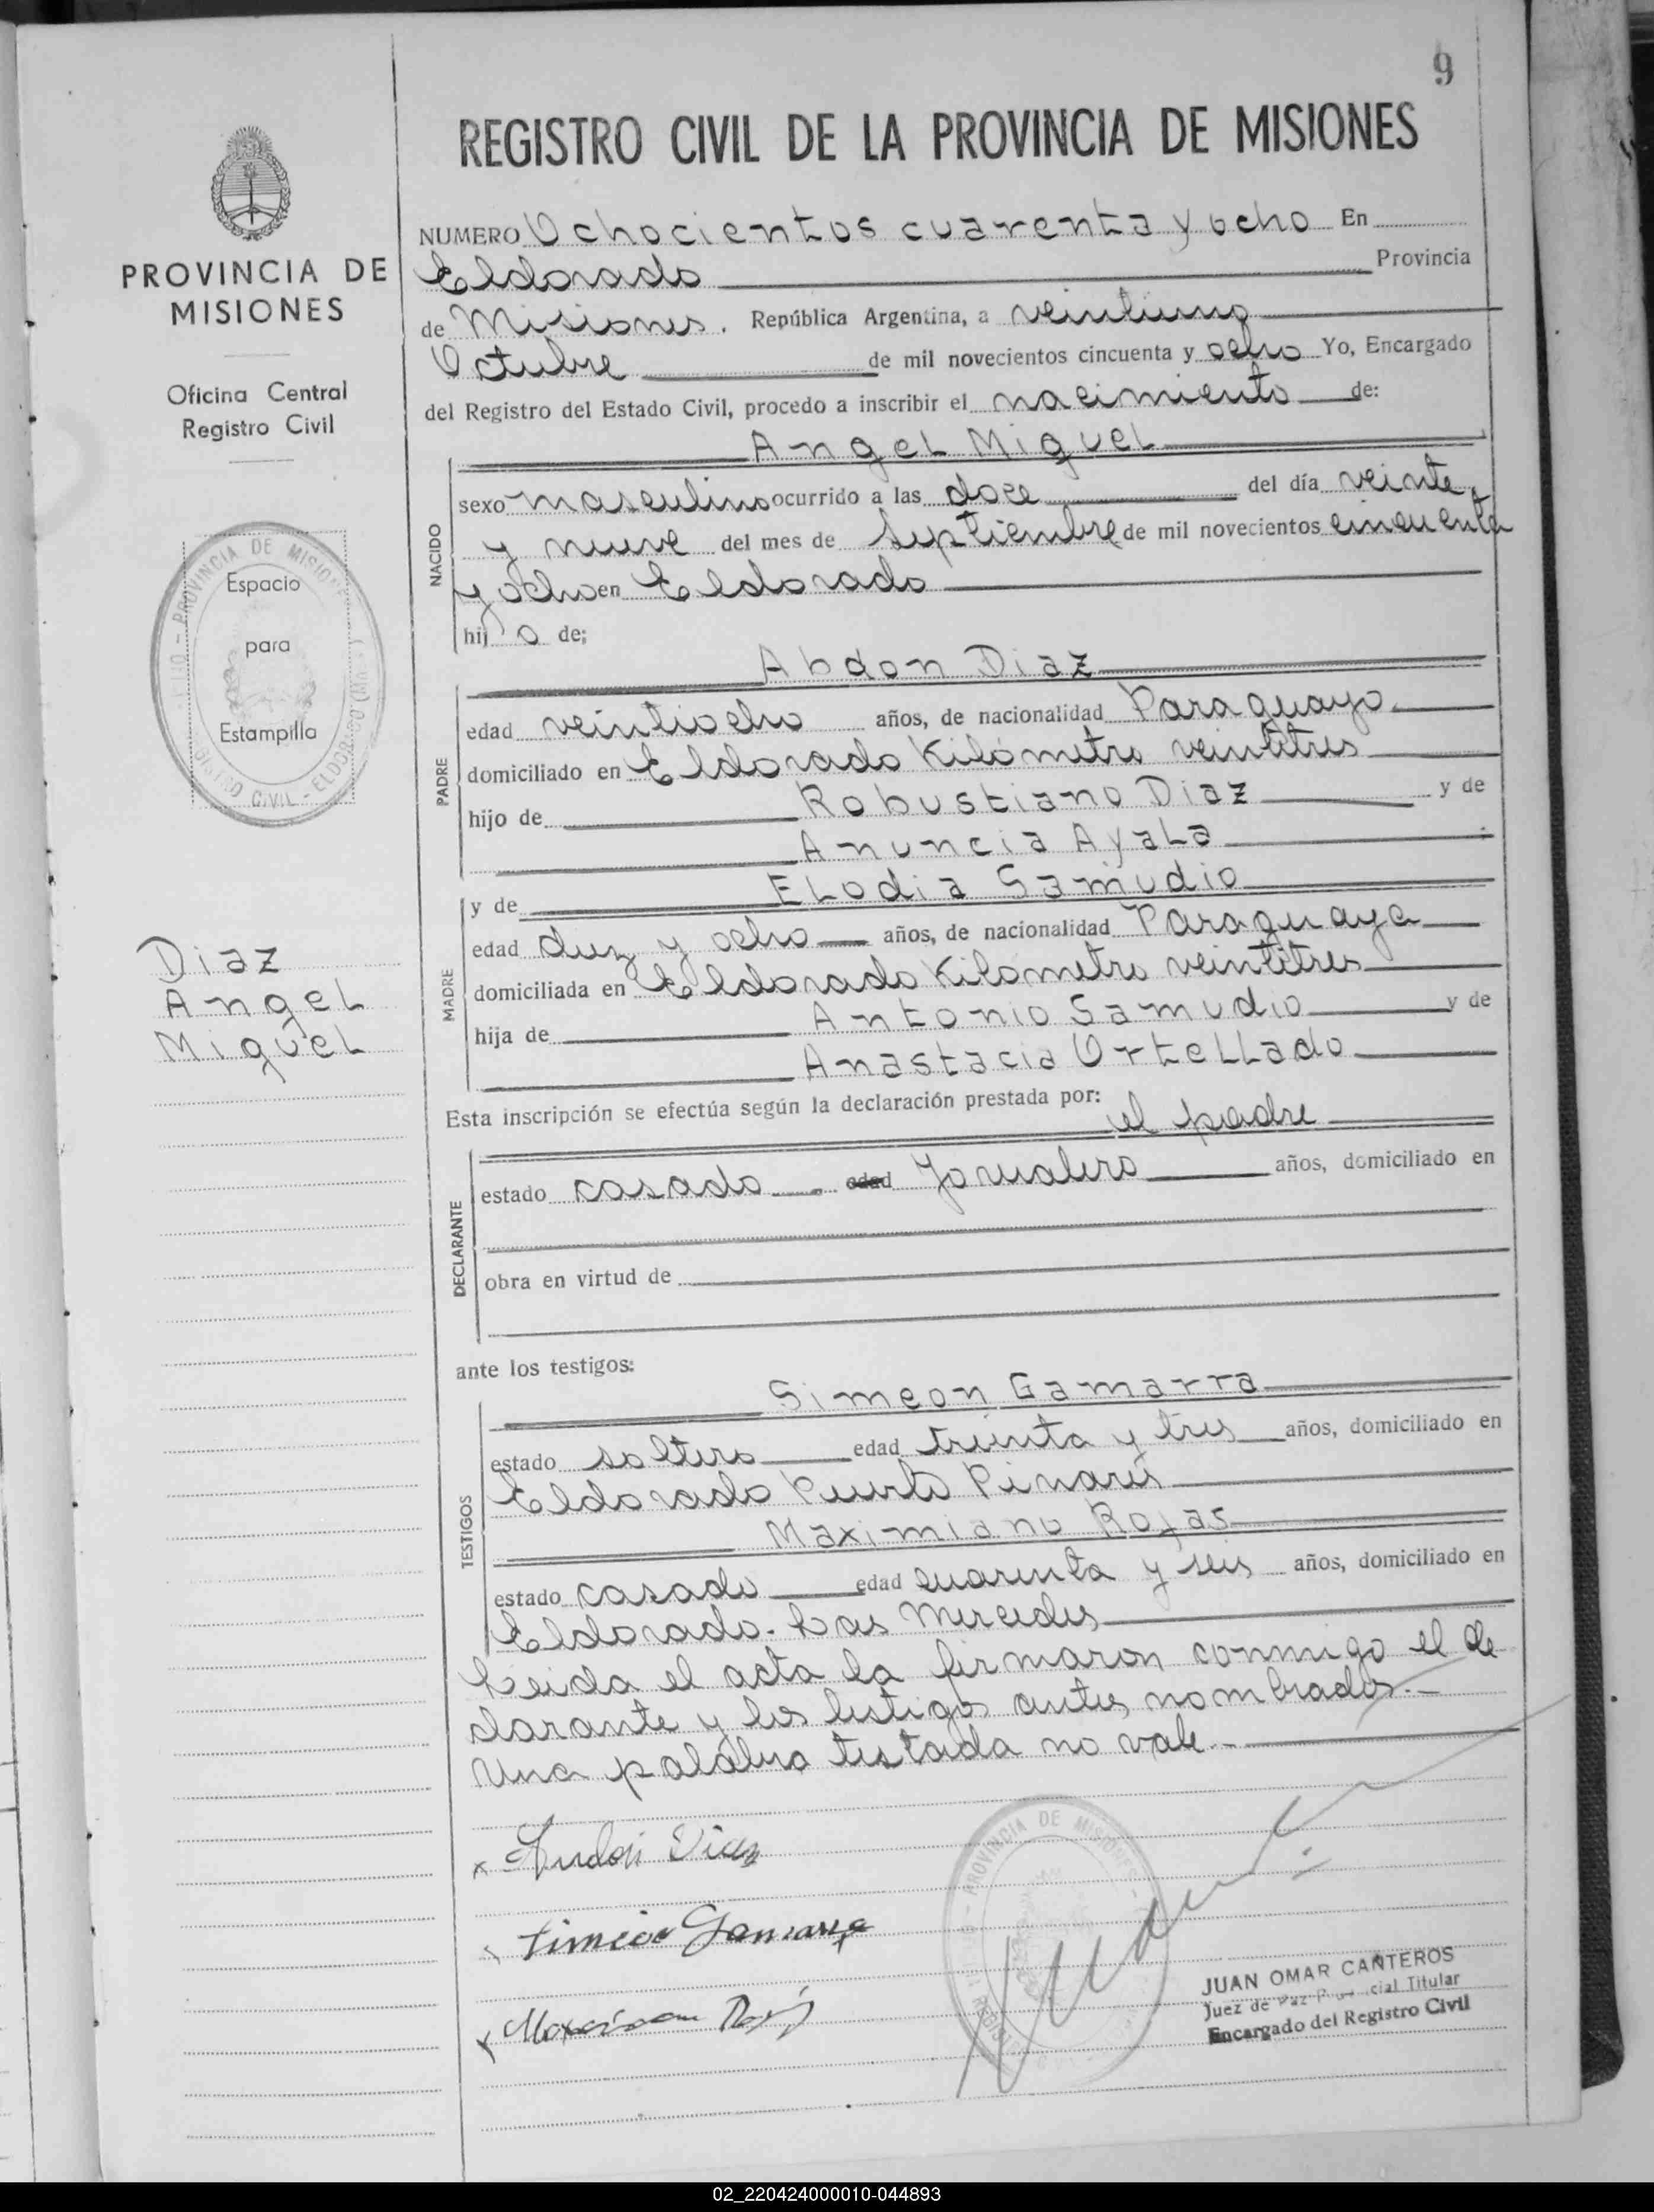 9
REGISTRO CIVIL DE LA PROVINCIA DE MISIONES
PROVINCIA DE
MISIONES
Oficina Central
Registro Civil
Espacio
para
Estampilla
Diaz
Angel
Miguel
NUMERO Ochocientos cuarenta y ocho En
Eldorado Provincia
de Misiones. República Argentina, a veintiuno
Octubre de mil novecientos cincuenta y ocho Yo, Encargado
del Registro del Estado Civil, procedo a inscribir el nacimiento de:
Angel Miguel
NACIDO
sexo masculino ocurrido a las doce del día veinte
y nueve del mes de Septiembre de mil novecientos cincuenta
y ocho en Eldorado
hijo de;
Abdon Diaz
PADRE
edad veintiocho años, de nacionalidad Paraguayo
domiciliado en Eldorado Kilómetro veintitres
hijo de Robustiano Diaz y de
Anuncia Ayala
y de Elodia Samudio
MADRE
edad diez y ocho años, de nacionalidad Paraguaya
domiciliada en Eldorado Kilómetro veintitres
hija de Antonio Samudio y de
Anastacia Ortellado
Esta inscripción se efectúa según la declaración prestada por: el padre
DECLARANTE
estado casado. edad Jornalero años, domiciliado en
obra en virtud de
ante los testigos:
Simeon Gamarra
TESTIGOS
estado soltero edad treinta y tres años, domiciliado en
Eldorado Puerto Pinares
Maximiano Rojas
estado casado edad cuarenta y seis años, domiciliado en
Eldorado. Las Mercedes
Leida el acta la firmaron conmigo el de
clarante y los testigos antes nombrados.-
Una palabra testada no vale.-
Diaz
Simeon Gamarra
PROVINCIA DE MISIONES
JUAN OMAR CANTEROS
Juez de Paz Titular
Encargado del Registro Civil
02_220424000010-044893